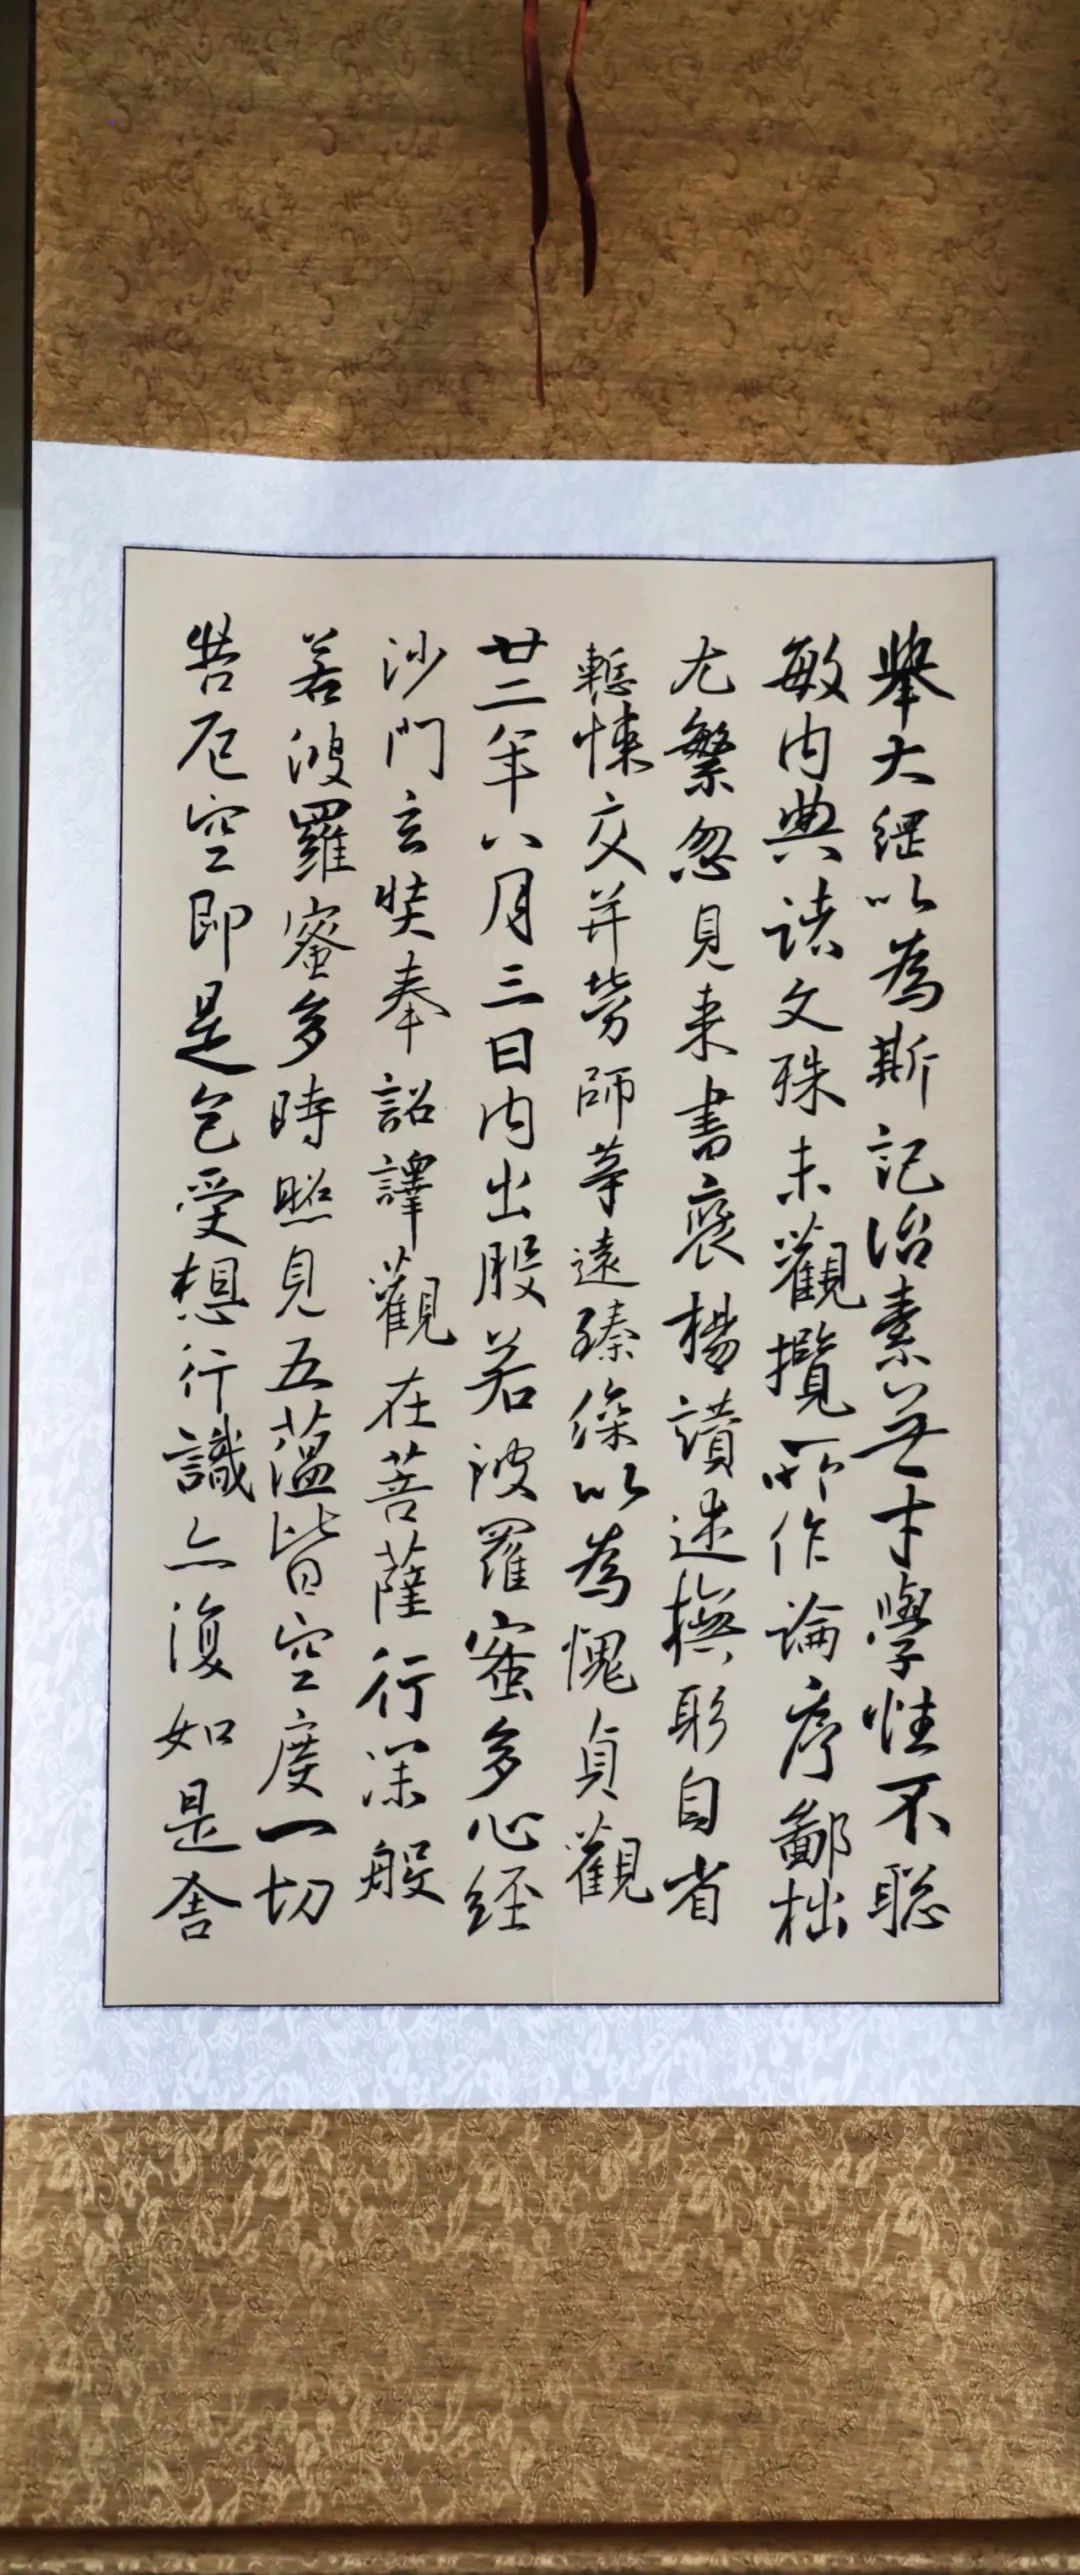 舉大綱以為斯記治素無才學性不聡
敏内典諸文殊未觀攬所作論序鄙拙
尤繁忽見来書褒揚讚述撫躬自省
慙悚交并勞師等遠臻深以為愧貞觀
廿二年八月三日内出般若波羅蜜多心經
沙門玄奘奉詔譯觀在菩薩行深般
若波羅蜜多時照見五蘊皆空度一切
苦厄空即是色受想行識亦復如是舍